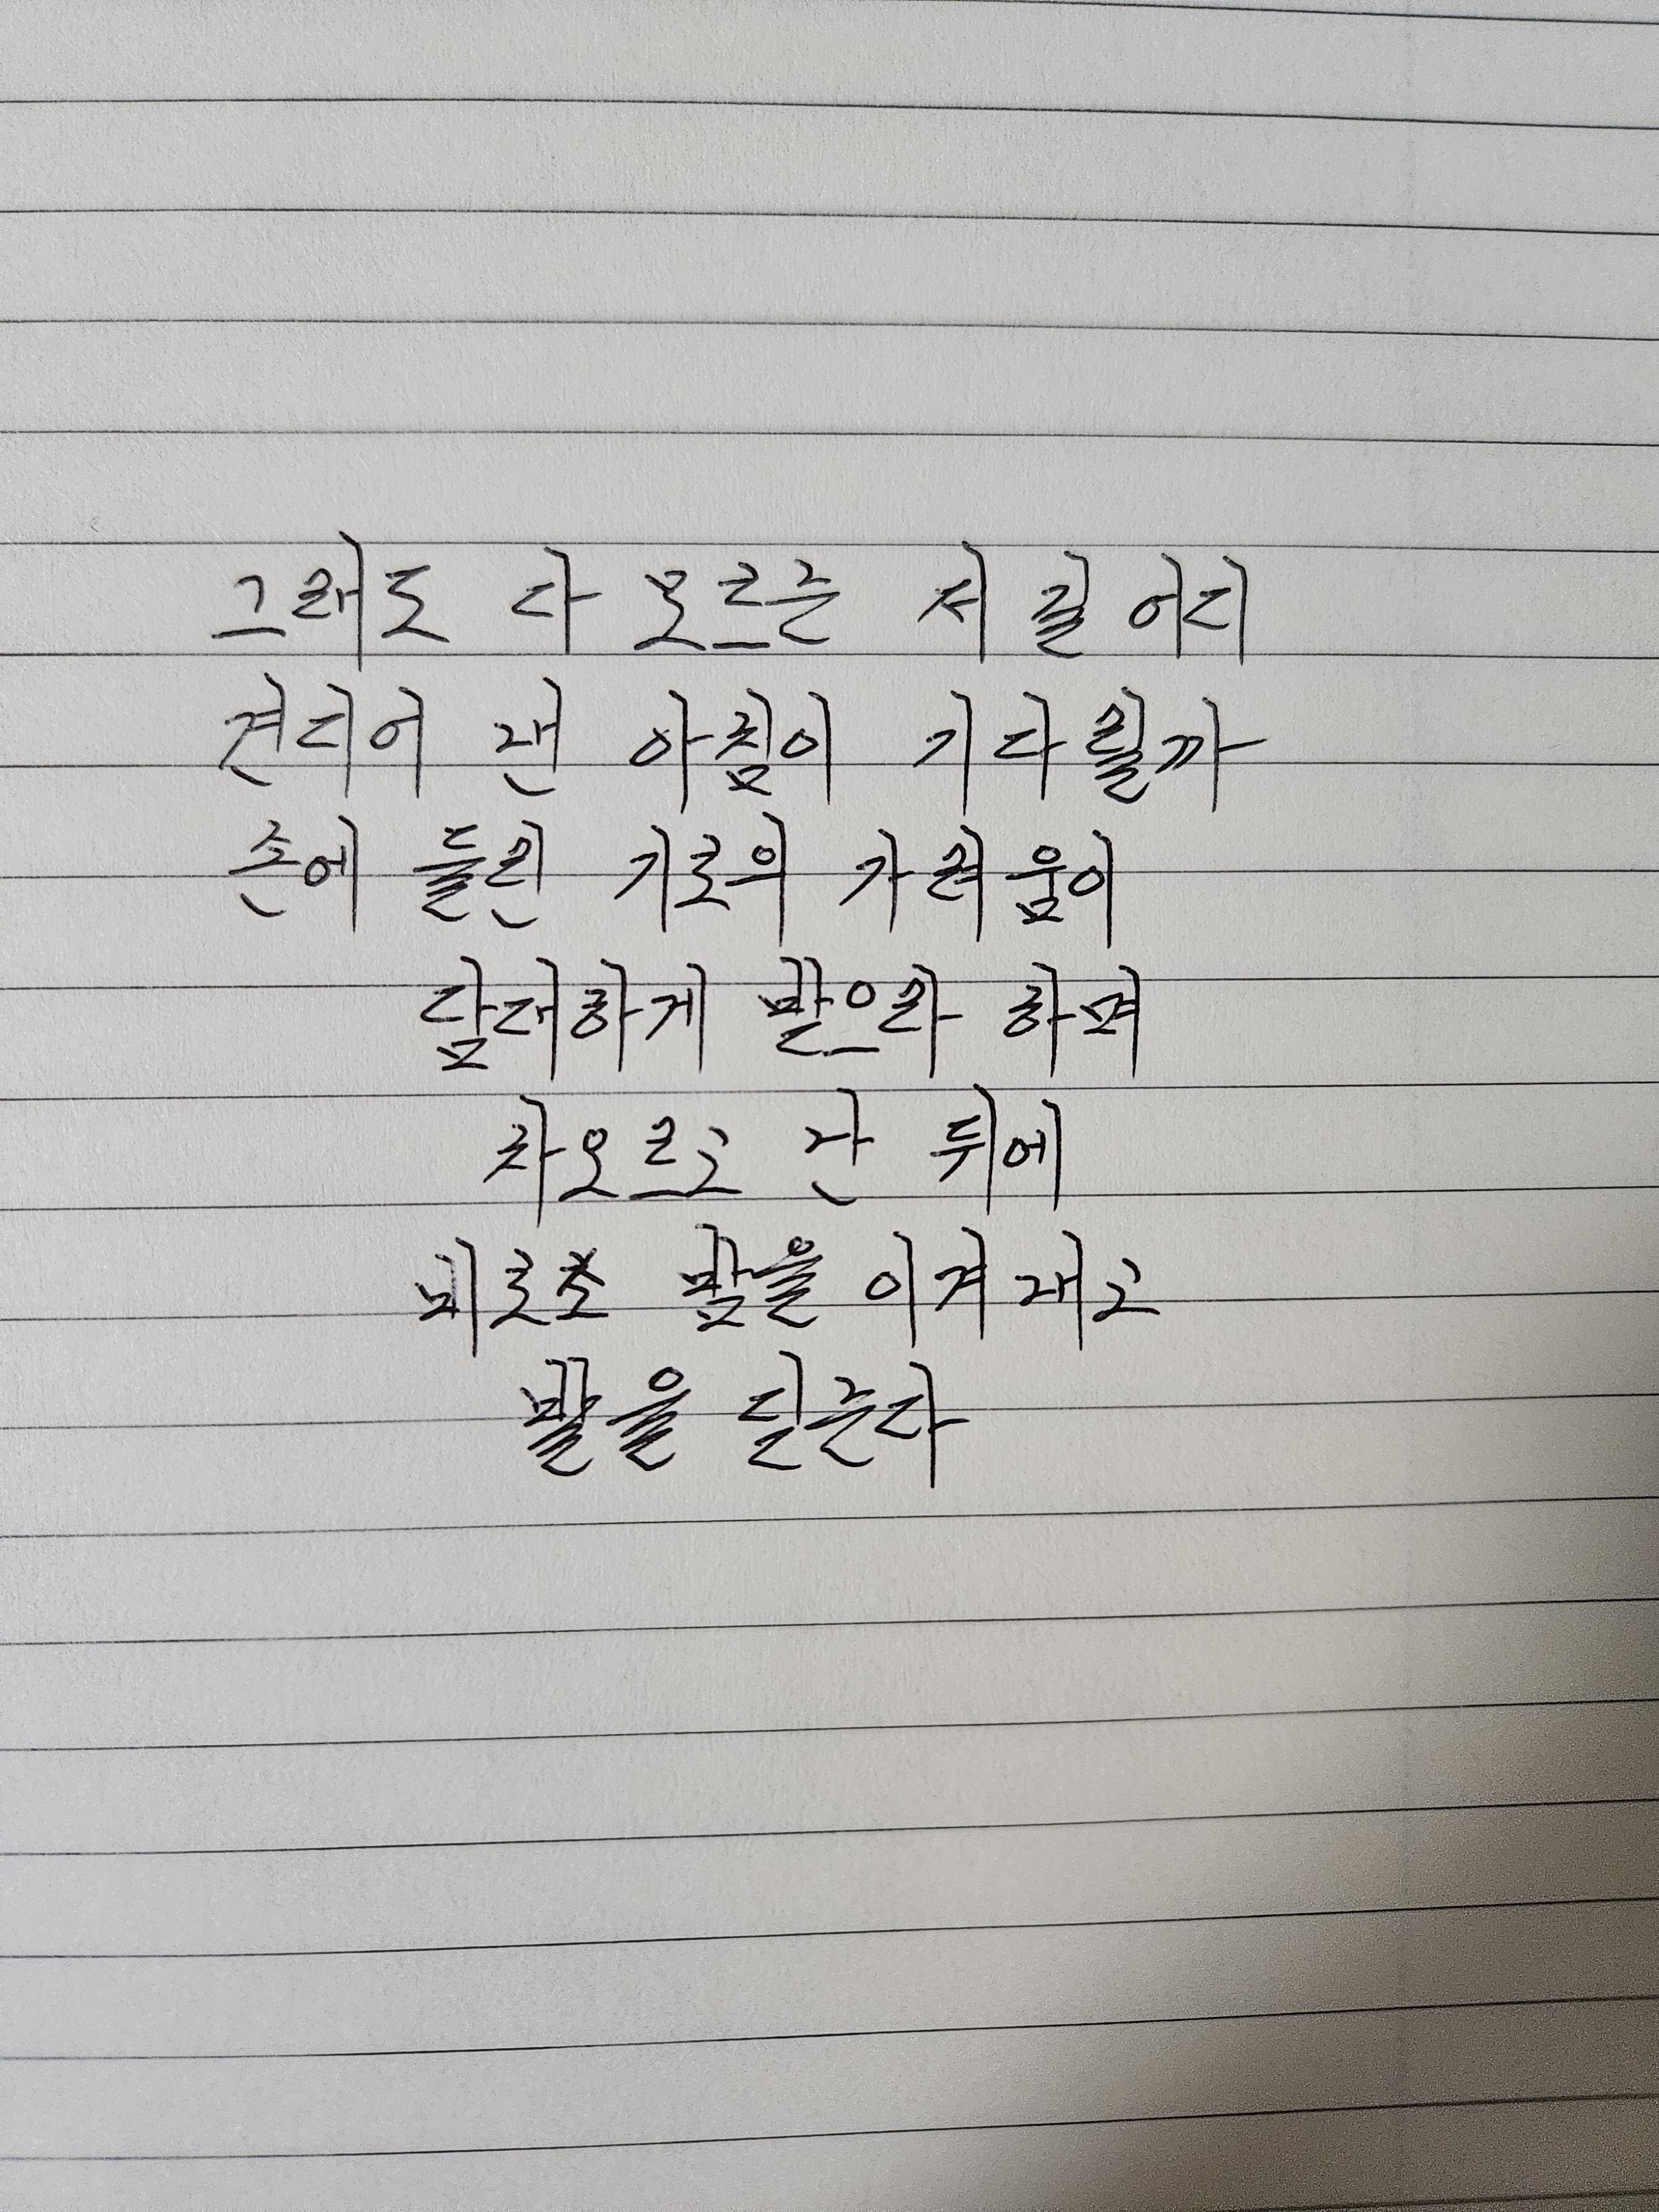 그래도 다 오르는 저 길 어디
견디어 낸 아침이 기다릴까
손에 들린 기로의 가려움이
담대하게 밟으라 하며
차오르고 난 뒤에
비로소 밤을 이겨내고
발을 딛는다